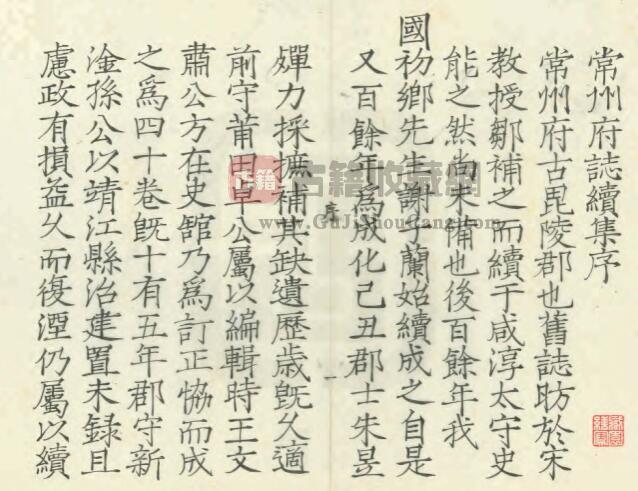 常州府誌續集序
常州府古毘陵郡也舊誌昉於宋
教授鄒補之而續于咸淳太守史
能之然尚未備也後百餘年我
國初鄉先生謝子蘭始續成之自是
又百餘年為成化己丑郡士朱昱
嬋力採摭補其缺遺歷歲既久適
前守莆田卓公屬以編輯時王文
肅公方在史館乃為訂正協而成
之為四十卷既十有五年郡守新
淦孫公以靖江縣治建置未錄且
慮政有損益久而復湮仍屬以續
古籍收藏網
www.GuJiShouCang.com
古籍